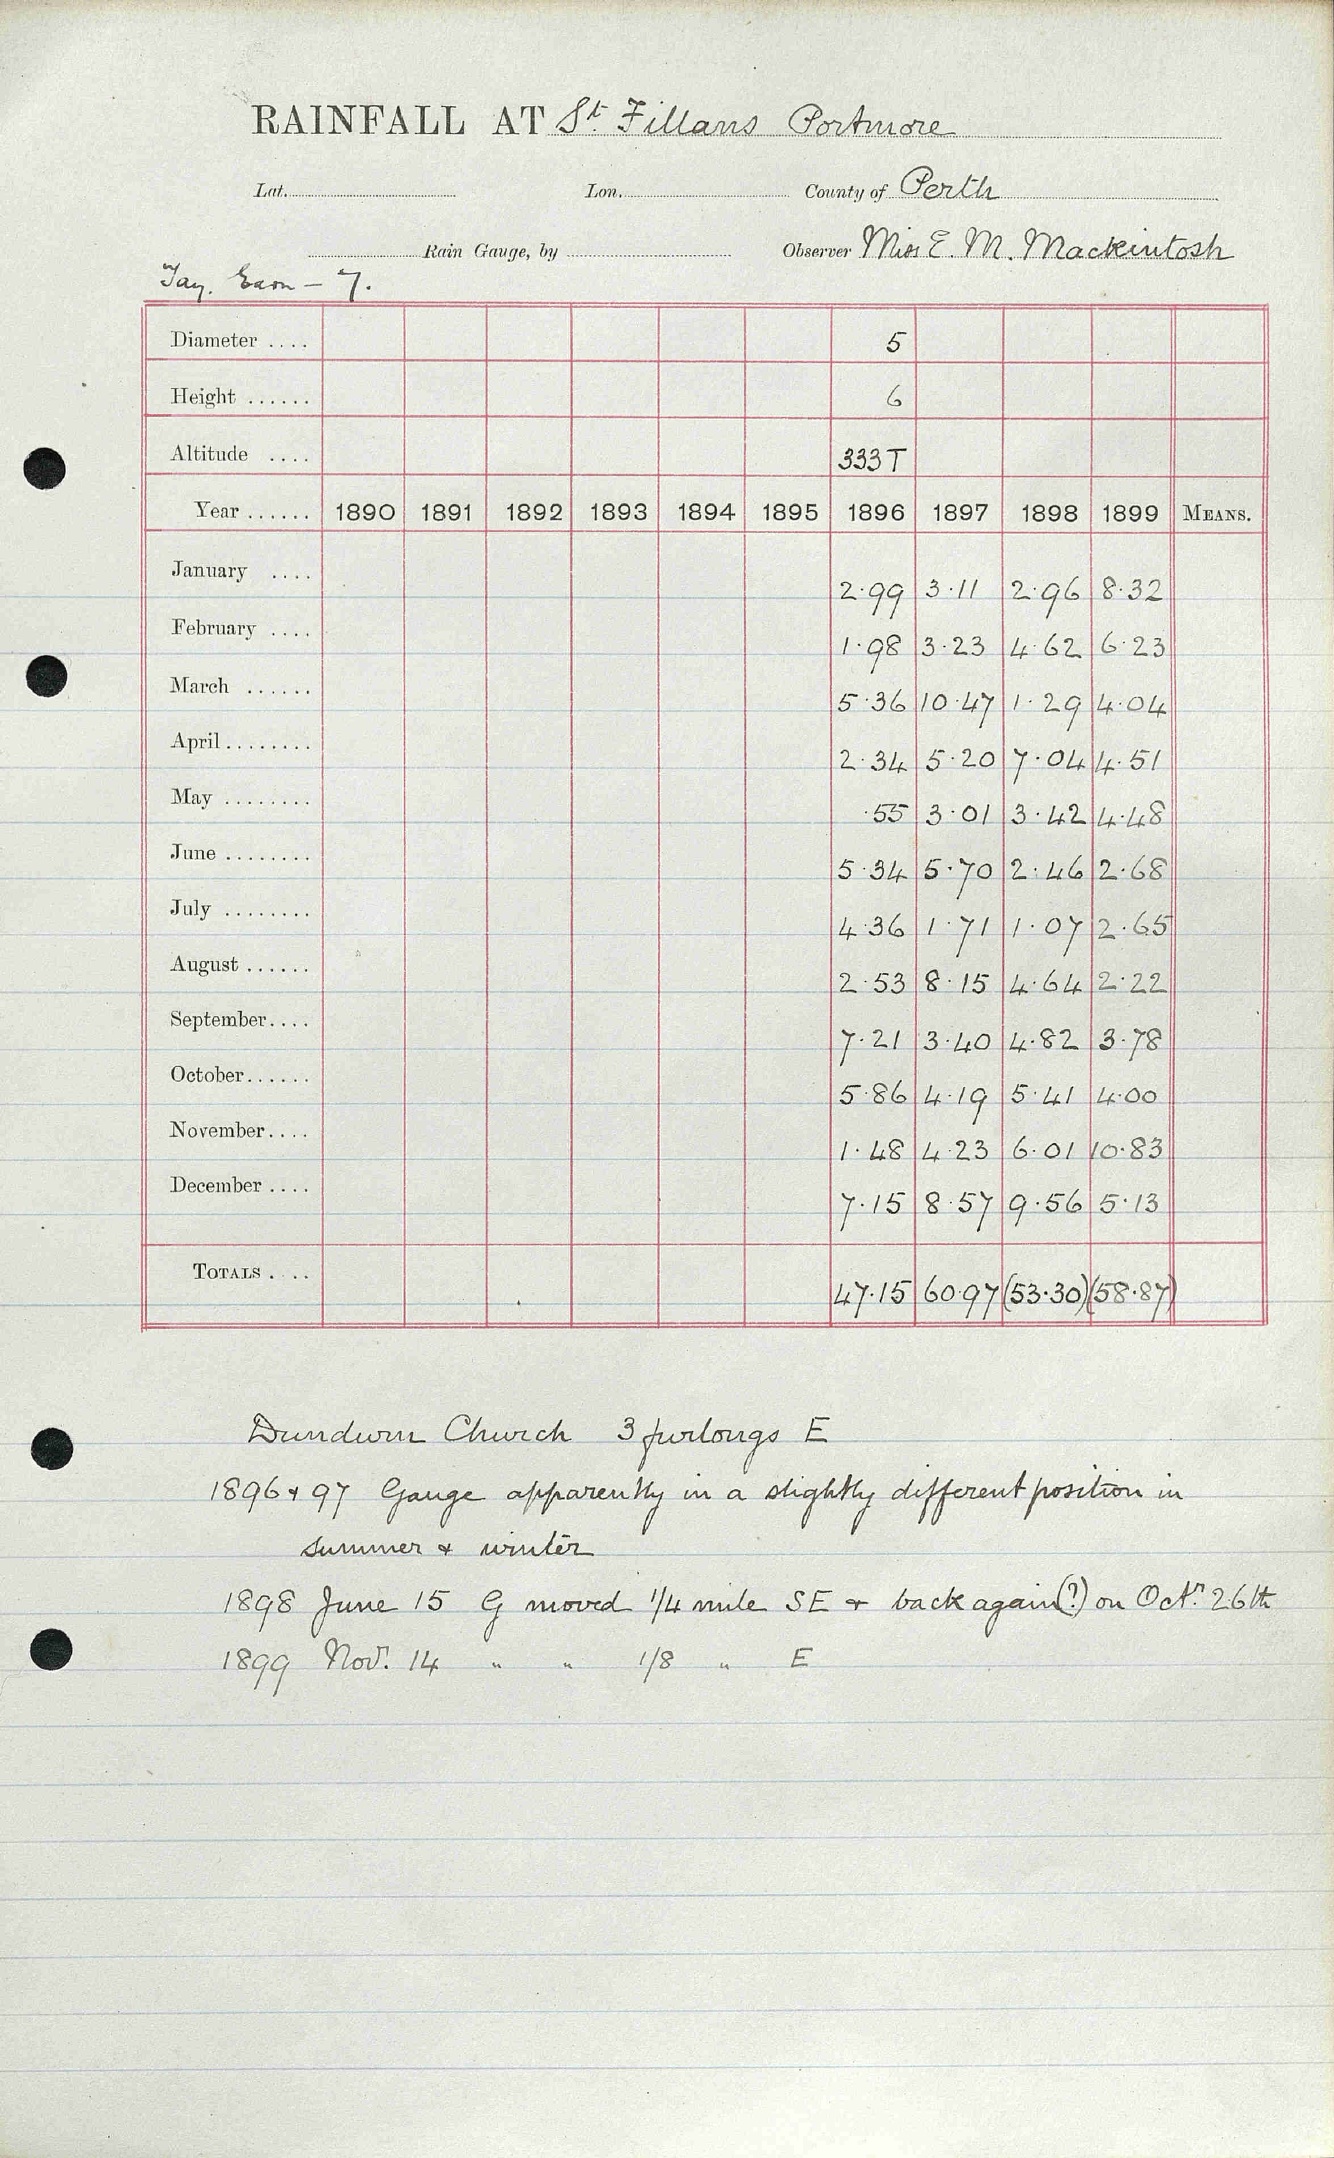 RAINFALL AT St. Fillans Portmore
Lat. Lon. County of Perth
Rain Gauge, by Observer Miss E. M. Mackintosh
Tay. Earn – 7.
Diameter .... 5
Height ...... 6
Altitude .... 333T
Year ...... 1890 1891 1892 1893 1894 1895 1896 1897 1898 1899 MEANS.
January .... 2.99 3.11 2.96 8.32
February .... 1.98 3.23 4.62 6.23
March ...... 5.36 10.47 1.29 4.04
April ........ 2.34 5.20 7.04 4.51
May ........ .55 3.01 3.42 4.48
June ........ 5.34 5.70 2.46 2.68
July ........ 4.36 1.71 1.07 2.65
August ...... 2.53 8.15 4.64 2.22
September.... 7.21 3.40 4.82 3.78
October...... 5.86 4.19 5.41 4.00
November.... 1.48 4.23 6.01 10.83
December .... 7.15 8.57 9.56 5.13
TOTALS .... 47.15 60.97 (53.30) (58.87)
Dundurn Church 3 furlongs E
1896 & 97 Gauge apparently in a slightly different position in
summer & winter
1898 June 15 G moved 1/4 mile SE & back again (?) on Octr. 26th
1899 Nov. 14 " " 1/8 " E